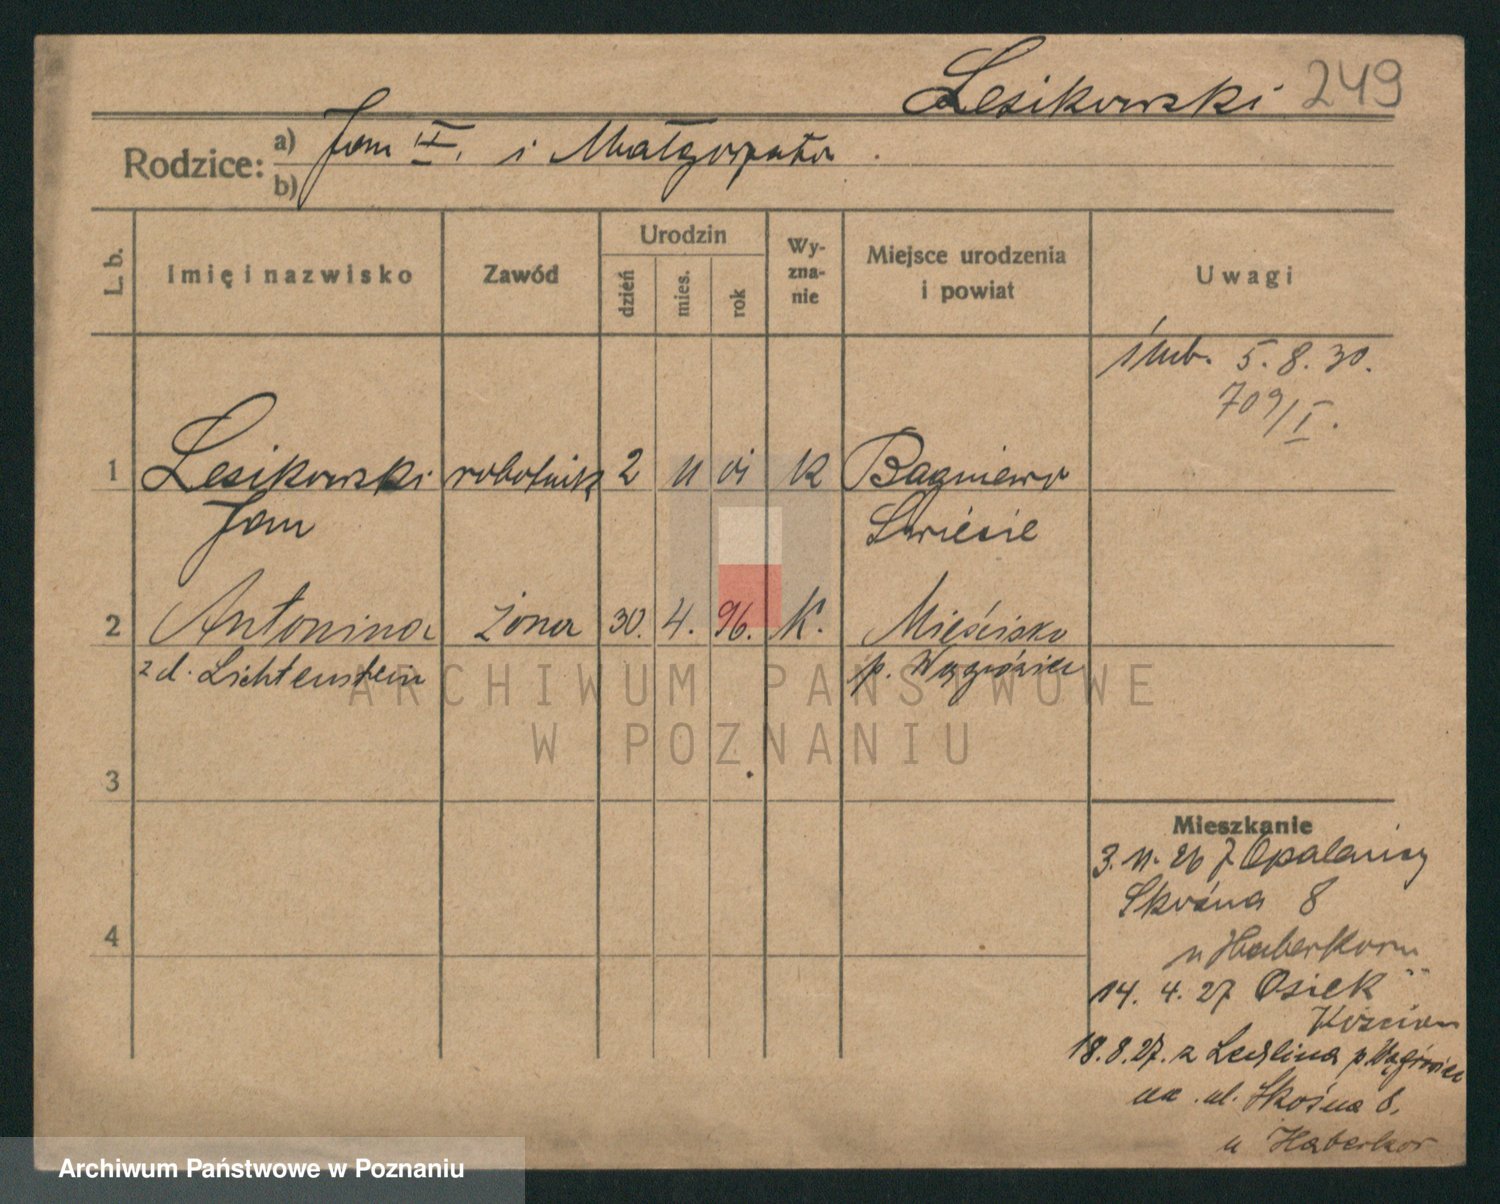 Lesikowski 249
Rodzice: a) Jan II. i Małgorzata.
b)
L. b.
Imię i nazwisko
Zawód
Urodzin
dzień
mies.
rok
Wy-
zna-
nie
Miejsce urodzenia
i powiat
Uwagi
ślub. 5. 8. 30.
709/I.
1 Lesikowski robotnik 2 11 01 k Bagniewo
Jan Świecie
2 Antonina żona 30. 4. 96. K. Mieścisko
z d. Lichtenstein p. Wągrówiec
3
4
Mieszkanie
3. 11. 26 z Opalenicy
Skośna 8
u Haberkorn
14. 4. 27 Osiek
Kościan
18. 8. 27. z p. Wągrówiec
na ul. Skośna 8.
u Haberkor
ARCHIWUM PAŃSTWOWE
W POZNANIU
Archiwum Państwowe w Poznaniu